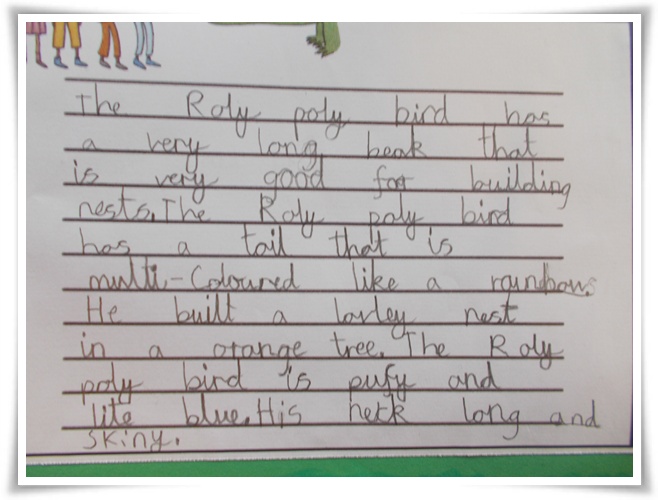 The Roly poly bird has
a very long beak that
is very good for building
nests. The Roly poly bird
has a tail that is
multi-Coloured like a raindbows
He built a lovley nest
in a orange tree. The Roly
poly bird is pufy and
lite blue. His neck long and
skiny.